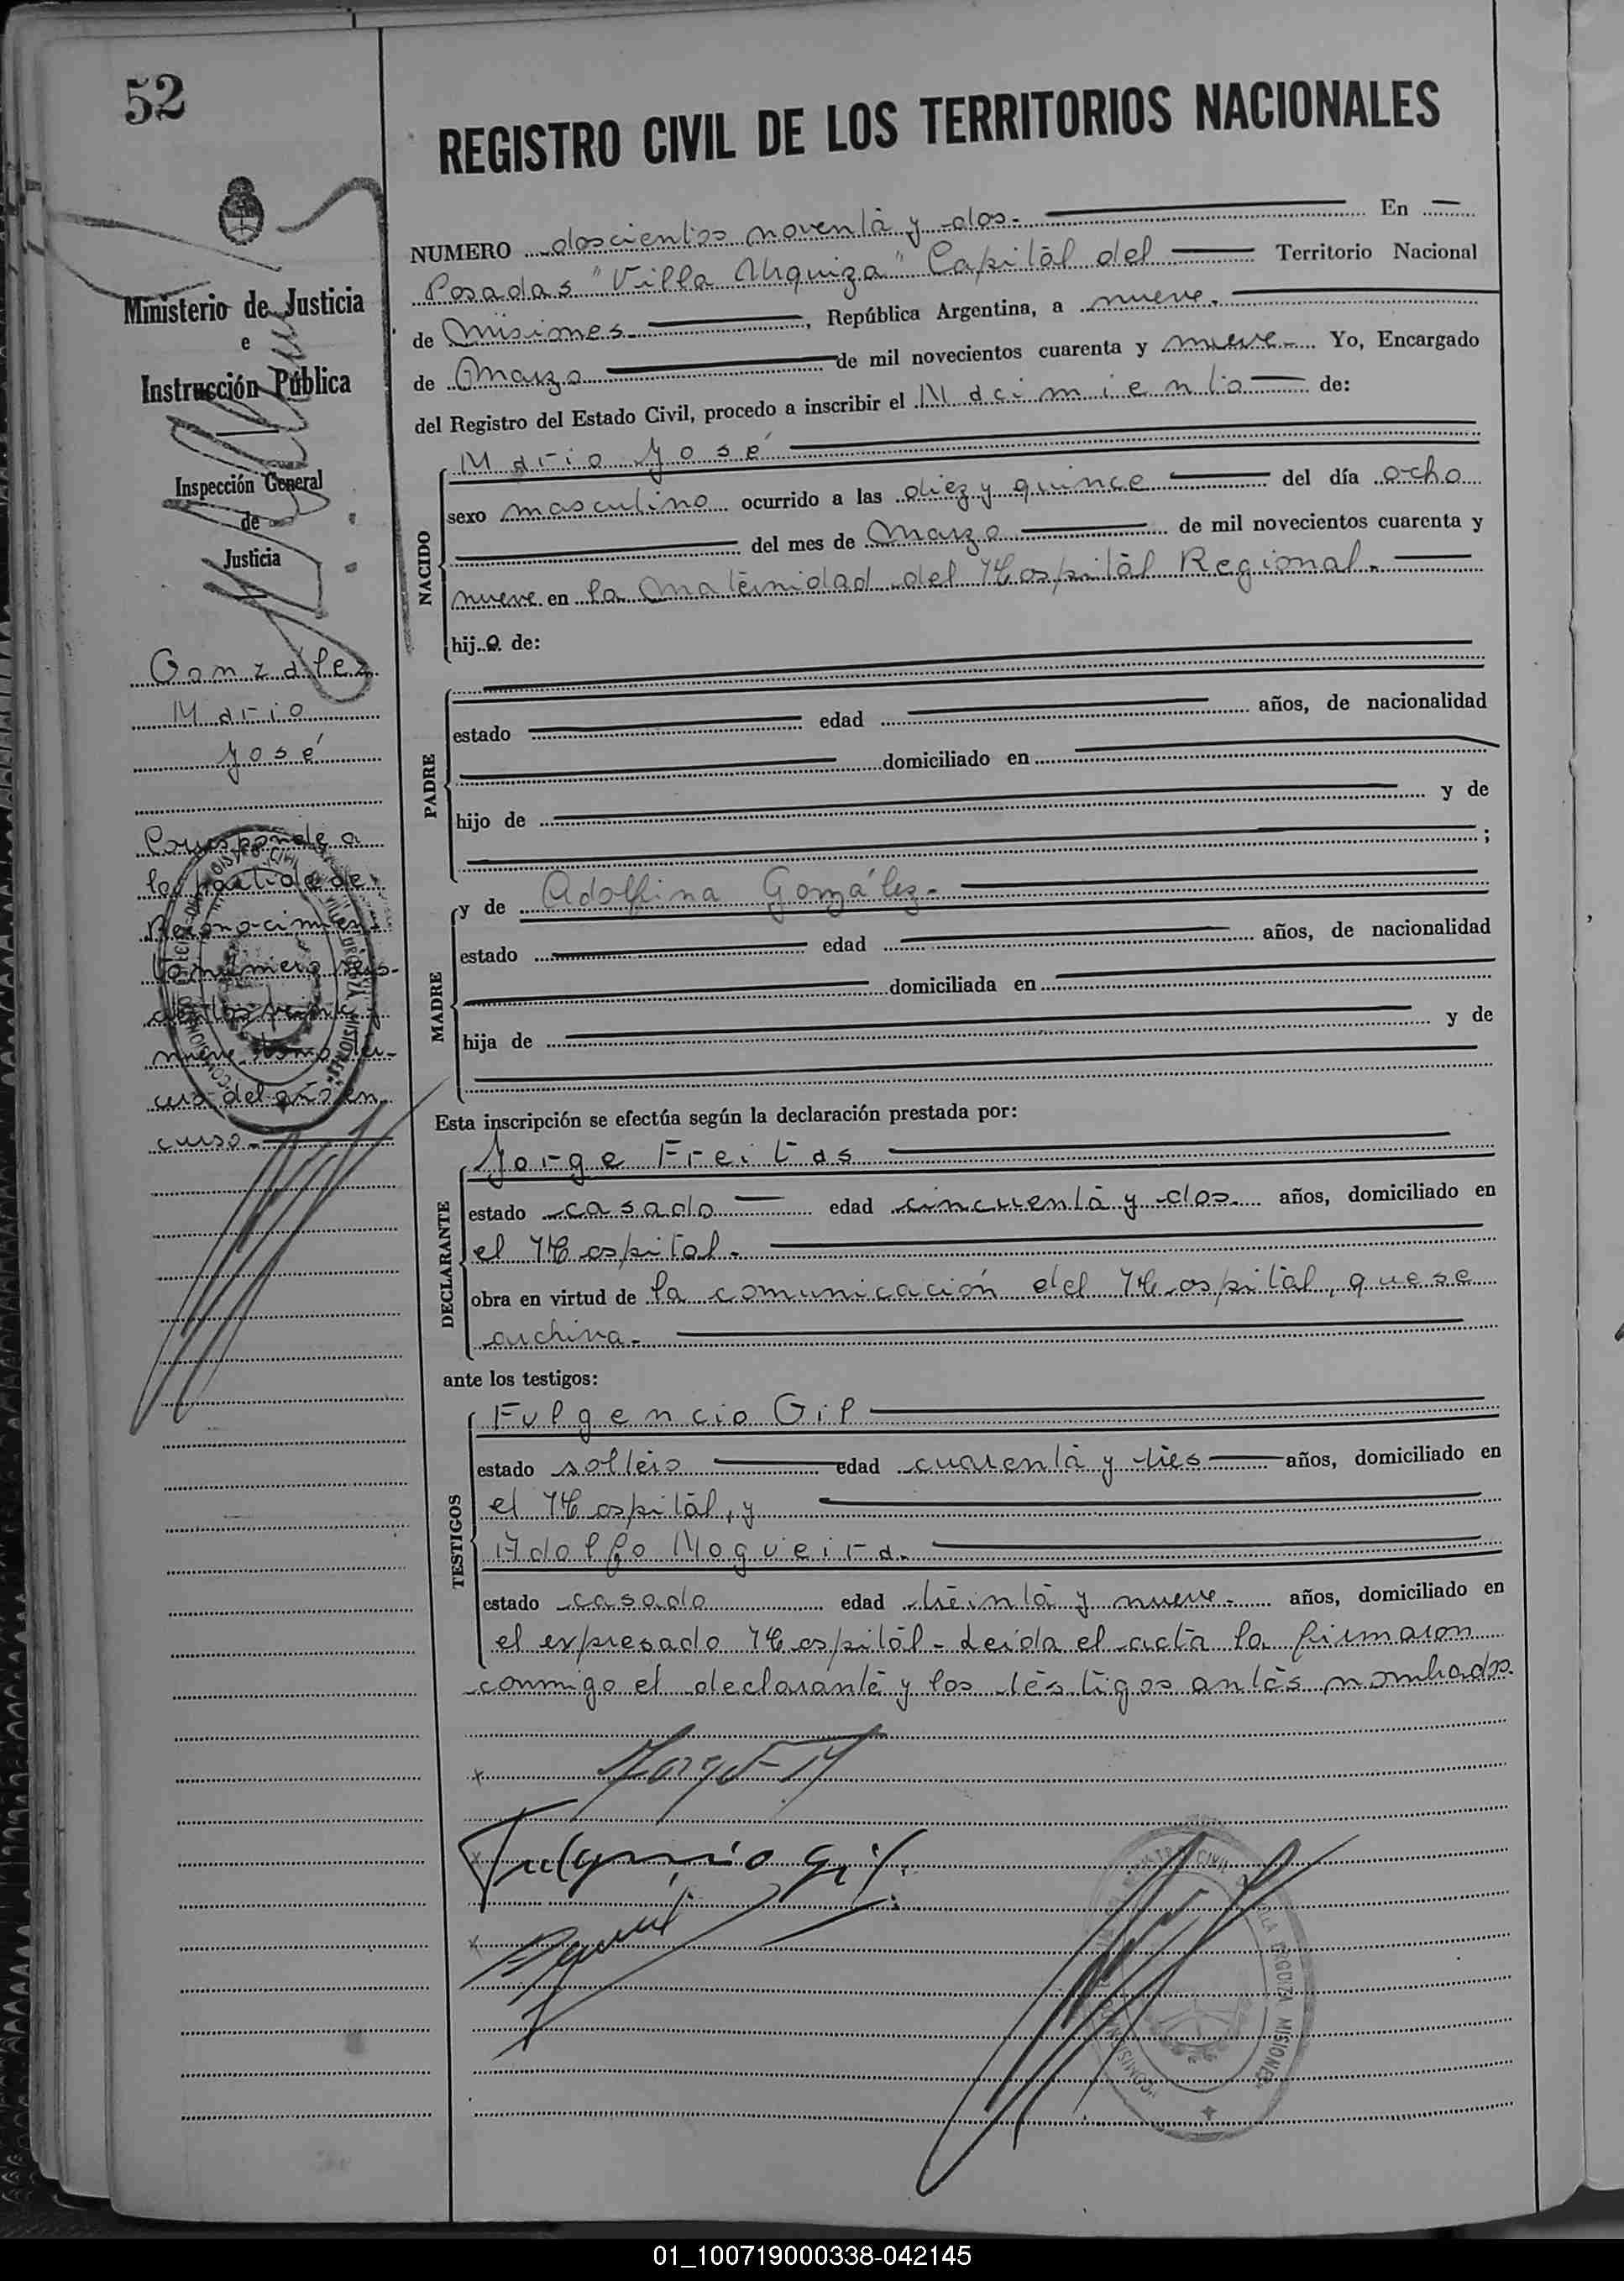 52
REGISTRO CIVIL DE LOS TERRITORIOS NACIONALES
Ministerio de Justicia
e
Instrucción Pública
Inspección General
de
Justicia
González
Mario
José
Corresponde a
la partida de
Reconocimien-
to número seis-
cientos veinte
nueve tomo ter-
cero del año en
curso.-
NUMERO doscientos noventa y dos.- En
Posadas "Villa Urquiza" Capital del Territorio Nacional
de Misiones, República Argentina, a nueve.
de Marzo de mil novecientos cuarenta y nueve.- Yo, Encargado
del Registro del Estado Civil, procedo a inscribir el Nacimiento de:
NACIDO
Mario José
sexo masculino ocurrido a las diez y quince del día ocho
del mes de Marzo de mil novecientos cuarenta y
nueve en la Maternidad del Hospital Regional.-
hijo de:
PADRE
estado edad años, de nacionalidad
domiciliado en
hijo de y de
;
MADRE
y de Adolfina González-
estado edad años, de nacionalidad
domiciliada en
hija de y de
Esta inscripción se efectúa según la declaración prestada por:
DECLARANTE
Jorge Freitas
estado casado edad cincuenta y dos años, domiciliado en
el Hospital.-
obra en virtud de la comunicación del Hospital, que se
archiva.-
ante los testigos:
TESTIGOS
Fulgencio Gil
estado soltero edad cuarenta y tres años, domiciliado en
el Hospital, y
Adolfo Nogueira.
estado casado edad treinta y nueve.- años, domiciliado en
el expresado Hospital- Leída el acta la firmaron
conmigo el declarante y los testigos antes nombrados.
Fulgencio Gil.
REGISTRO CIVIL VILLA URQUIZA MISIONES
01_100719000338-042145